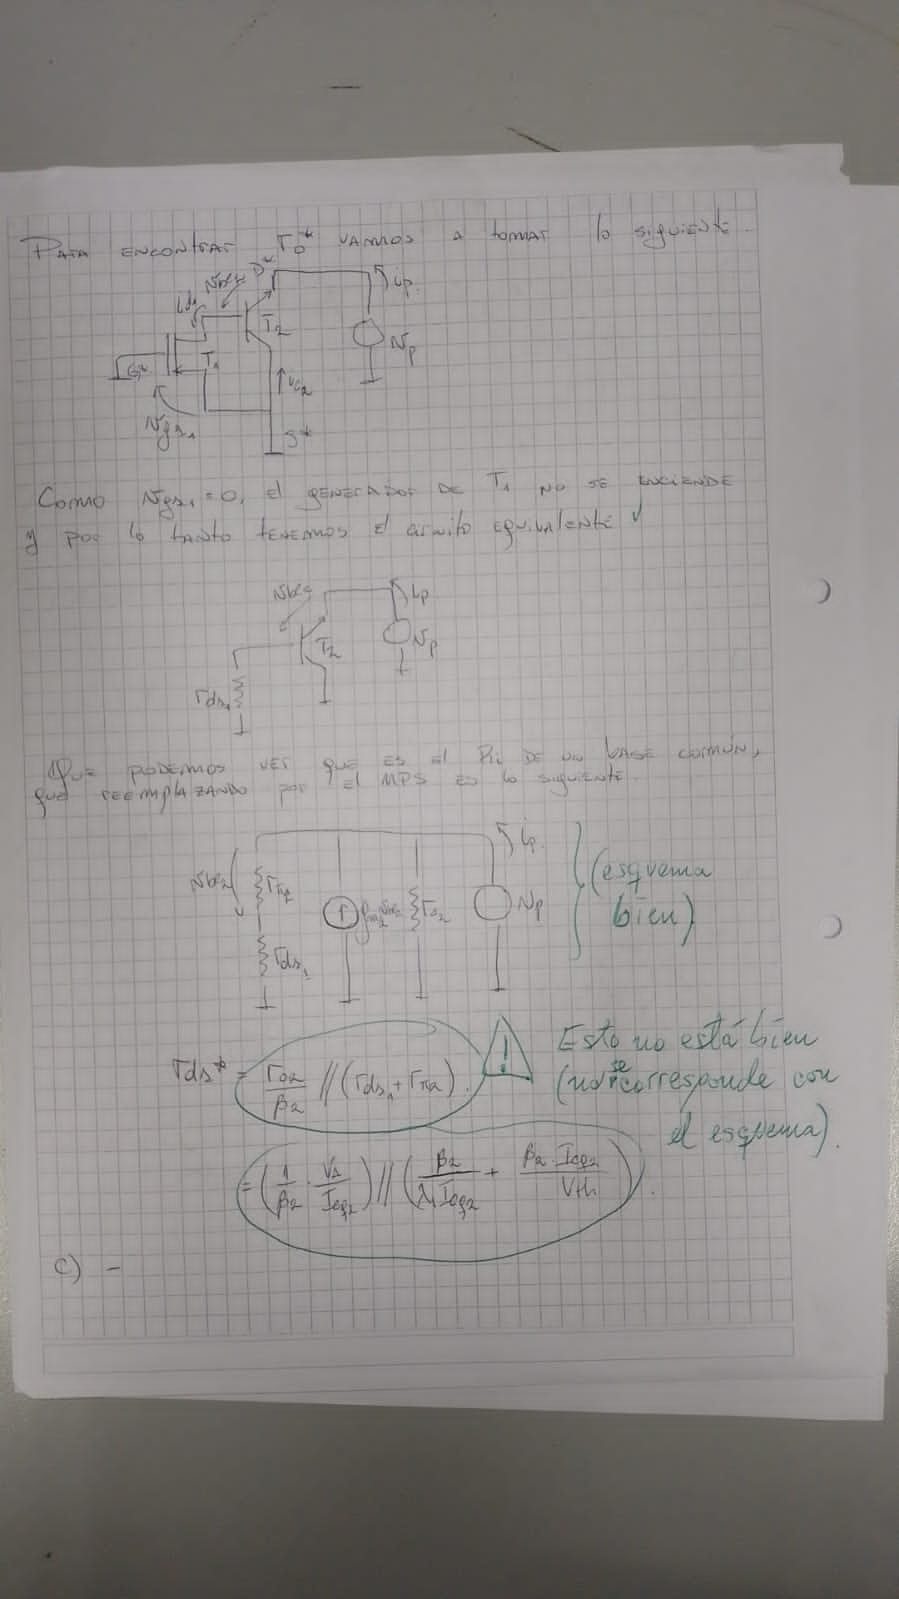 PARA ENCONTRAR ro* VAMOS a tomar lo siguiente.
Vbe2 D*
ip
id1
T2
Vp
G*
T1
Vc2
Vgs1
S*
Como Vgs1 = 0, el GENERADOR DE T1 NO SE ENCIENDE
y por lo tanto tenemos el circuito equivalente ✓
ip
T2
Vp
rds1
Que podemos ver que es el Ri DE UN BASE COMÚN,
que reemplazando por el MPS es lo siguiente.
ip
Vbe2
rπ2
gm2 Vbe2
ro2
Vp
rds1
(esquema
bien)
rds* = ro2/β2 // (rds1 + rπ2).
!
Esto no está bien
(no se corresponde con
el esquema).
= (1/β2 · VA/Icq2) // (β2/λIcq2 + β2·Icq2/Vth).
c) -